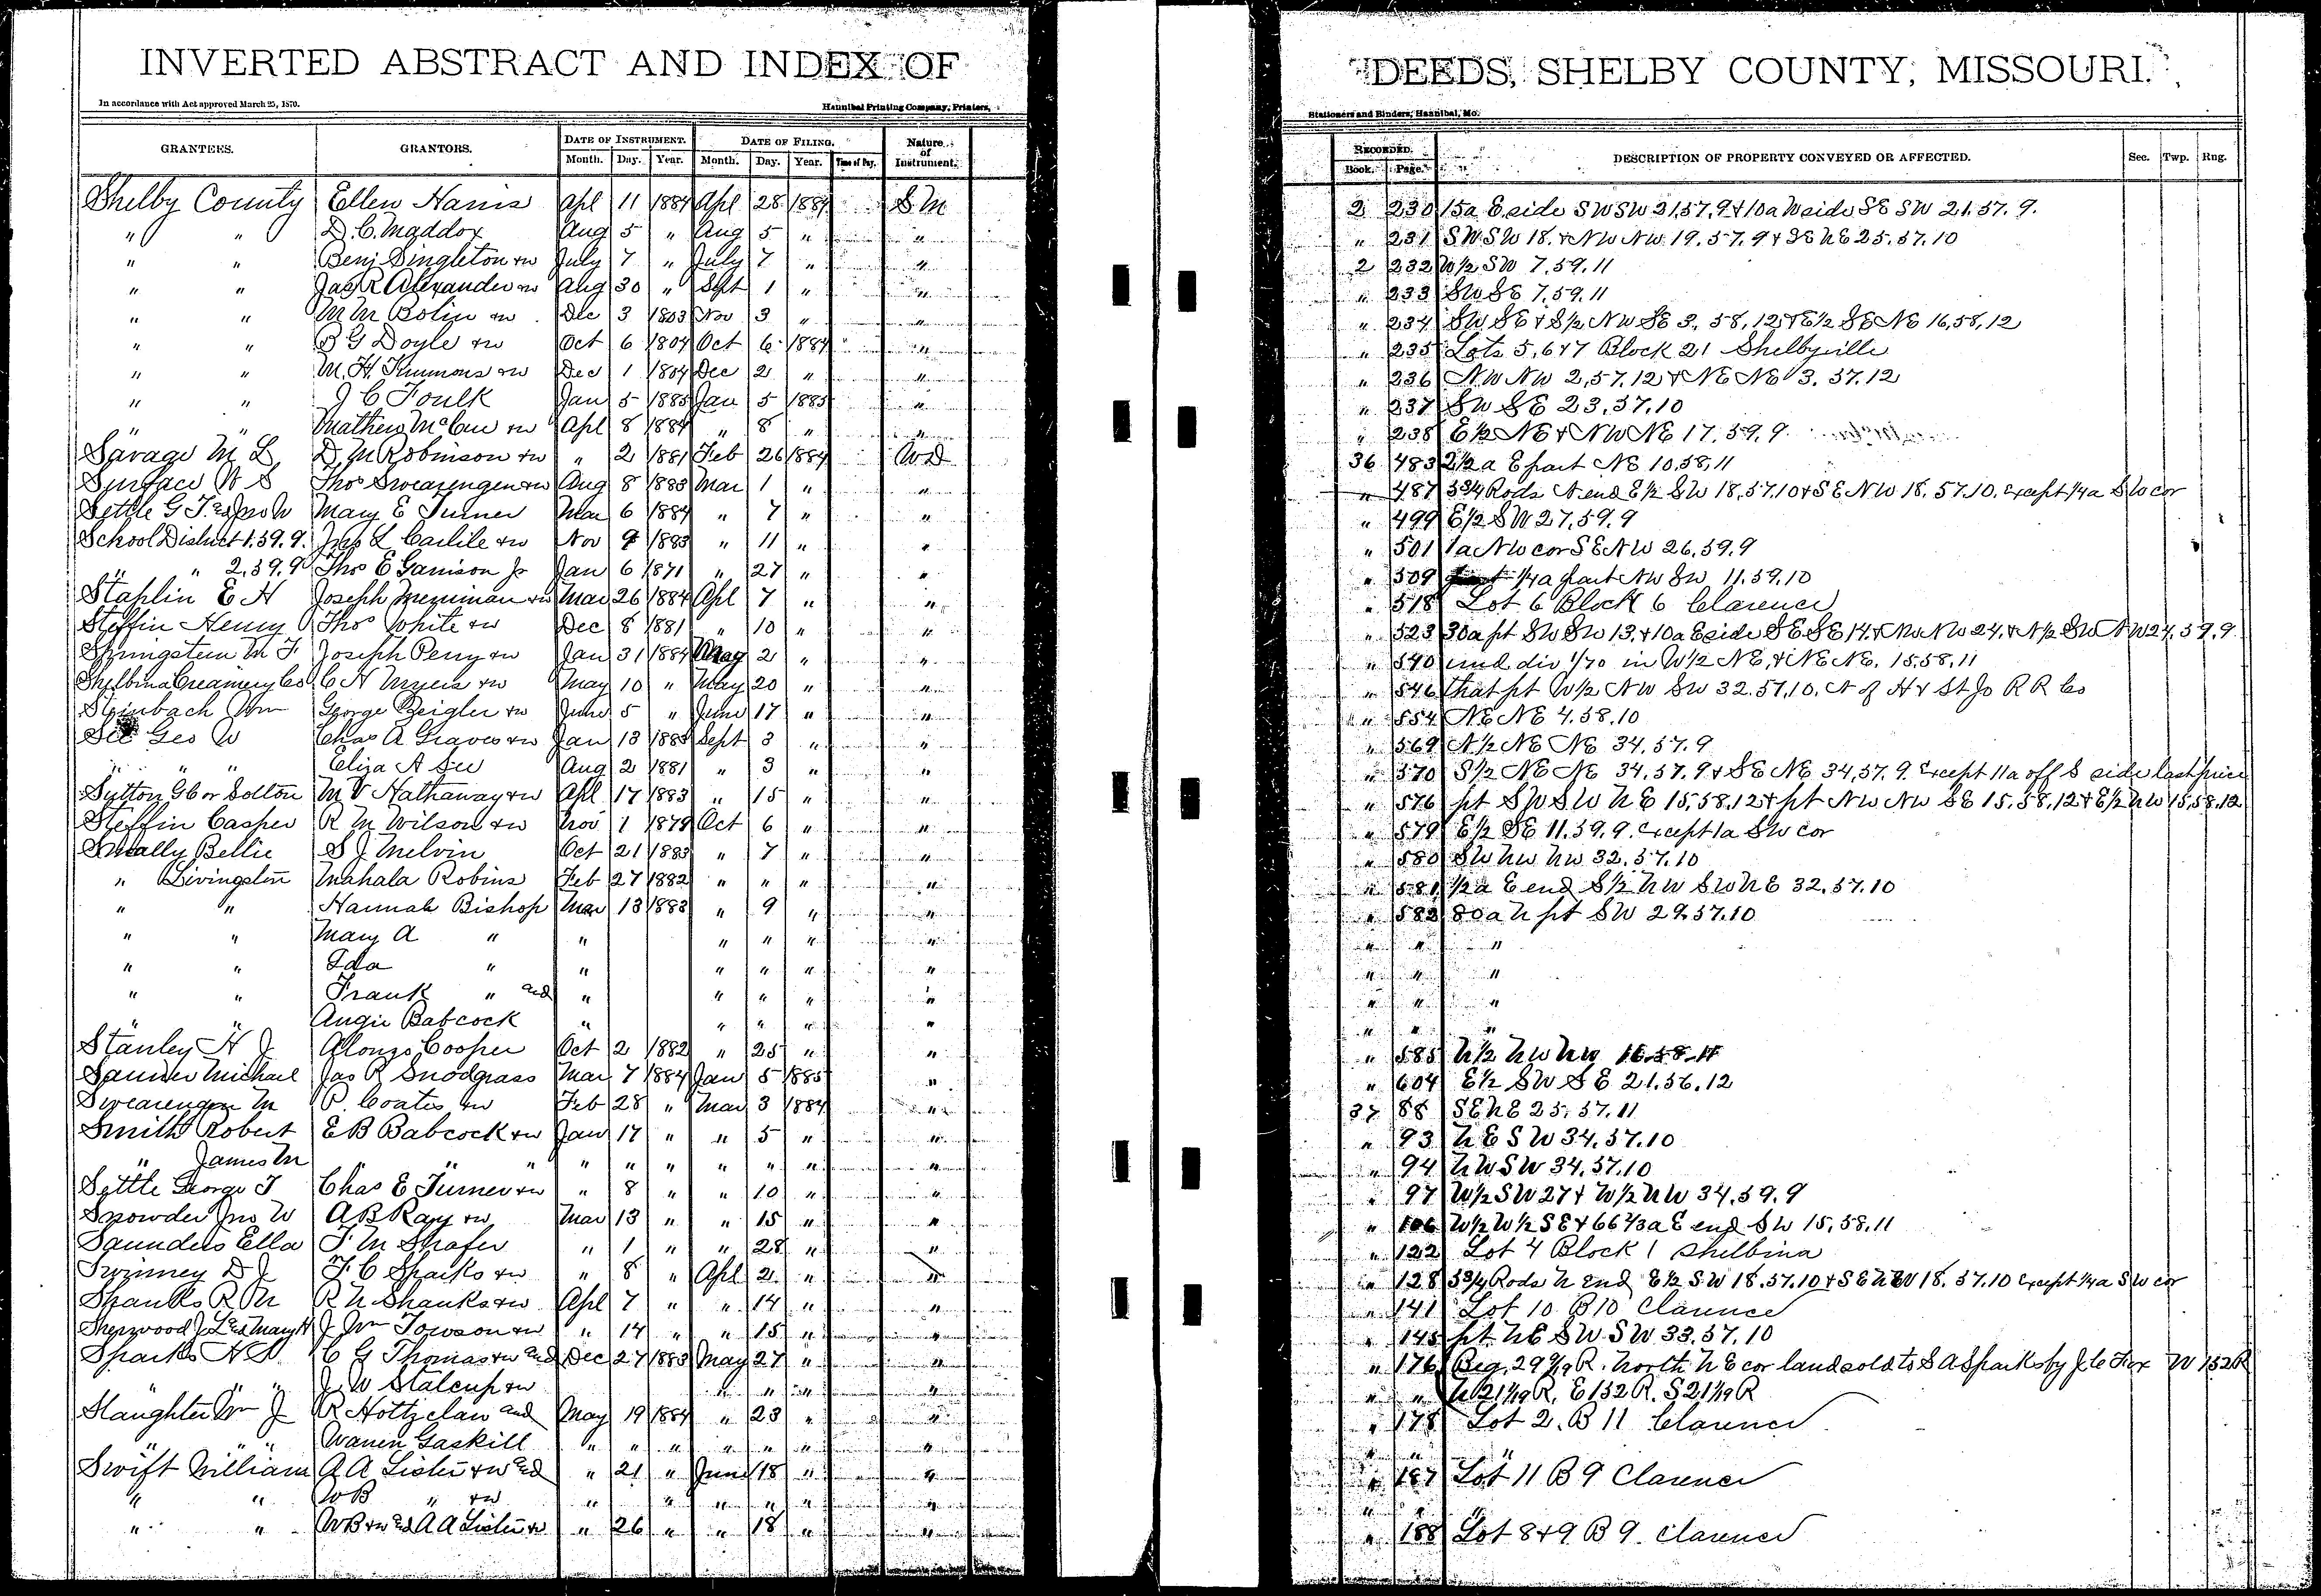 INVERTED ABSTRACT AND INDEX OF
In accordance with Act approved March 25, 1870.
Hannibal Printing Company, Printers,
GRANTEES. GRANTORS. DATE OF INSTRUMENT. DATE OF FILING. Nature of Instrument.
Month. Day. Year. Month. Day. Year. Time of Day.
Shelby County Ellen Harris Apl 11 1884 Apl 28 1884 S M
" " D. C. Maddox Aug 5 " Aug 5 " "
" " Benj Singleton + w July 7 " July 7 " "
" " Jas R Alexander + w Aug 30 " Sept 1 " "
" " M M Bolin + w Dec 3 1803 Nov 3 " "
" " B G Doyle + w Oct 6 1804 Oct 6 1884 "
" " M. H. Kimmons + w Dec 1 1804 Dec 2 " "
" " J C Foulk Jan 5 1885 Jan 5 1885 "
" " Mathew McCue + w Apl 8 1884 " 8 " "
Savage M L D. M Robinson + w " 2 1881 Feb 26 1884 W D
Surface W S Thos Swearengen + w Aug 8 1883 Mar 1 " "
Settle G T. & Jno W Mary E Turner Mar 6 1884 " 7 " "
School District 1. 59. 9. Jas L Carlile + w Nov 9 1883 " 11 " "
" " 2. 59. 9 Thos E Garrison Jr Jan 6 1871 " 27 " "
Staplin E H Joseph Merriman + w Mar 26 1884 Apl 7 " "
Steffin Henry Thos White + w Dec 8 1881 " 10 " "
Springsteen M F Joseph Perry + w Jan 31 1884 May 2 " "
Shelbina Creamery Co C H Myers + w May 10 " May 20 " "
Steinbach Wm George Zeigler + w June 5 " June 17 " "
See Geo W Chas A Graves + w Jan 13 1883 Sept 3 " "
" " " Eliza A See Aug 2 1881 " 3 " "
Sutton G C or Solton M V Hathaway + w Apl 17 1883 " 15 " "
Steffin Casper R M Wilson + w Nov 1 1878 Oct 6 " "
Smally Bellie S J Melvin Oct 21 1883 " 7 " "
" Livingston Mahala Robins Feb 27 1882 " " " "
" " Hannah Bishop Mar 13 1883 " 9 " "
" " Mary A " " " " " "
" " Ida " " " " " "
" " Frank " and " " " " "
" " Angie Babcock " " " " "
Stanley H J Alonzo Cooper Oct 2 1882 " 25 " "
Sanner Michael Jas R Snodgrass Mar 7 1884 Jan 5 1885 "
Swearengen M P. Coates + w Feb 28 " Mar 3 1884 "
Smith Robert E B Babcock + w Jan 17 " " 5 " "
" James M " " " " " " " " " "
Settle George T Chas E Turner + w " 8 " " 10 " "
Snowder Jno W A B Ray + w Mar 13 " " 15 " "
Saunders Ella F. M Shafer " 1 " " 28 " "
Swinney D J F. C Sparks + w " 8 " Apl 2 " "
Shanks R M R N Shanks + w Apl 7 " " 14 " "
Sherwood J L & Mary H J Wm Towson + w " 14 " " 15 " "
Sparks H S C G Thomas + w and Dec 27 1883 May 27 " "
" " " J. W Stalcup + w " " " "
Slaughter Wm J R Holtzclaw and May 19 1884 " 23 " "
" " " Warren Gaskill " " " " " " "
Swift William A A Lister + w and " 21 " June 18 " "
" " W B " + w " " " " " "
" " W B + w & A A Lister + w " 26 " " 18 " "
DEEDS, SHELBY COUNTY, MISSOURI.
Stationers and Binders, Hannibal, Mo.
RECORDED. DESCRIPTION OF PROPERTY CONVEYED OR AFFECTED. Sec. Twp. Rng.
Book. Page.
2 230 15a E side SW SW 21, 57, 9 + 10a W side SE SW 21. 57. 9.
" 231 SW SW 18. + NW NW 19. 57. 9 + SE NE 25. 57. 10
2 232 W 1/2 SW 7. 59. 11
" 233 SW SE 7. 59. 11
" 234 SW SE + S 1/2 NW SE 3, 58, 12 + E 1/2 SE NE 16, 58, 12
" 235 Lots 5, 6 + 7 Block 21 Shelbyville
" 236 NW NW 2, 57. 12 + NE NE 3. 57. 12
" 237 SW SE 23. 57. 10
" 238 E 1/2 NE + NW NE 17. 59. 9.
36 483 2 1/2 a E part NE 10. 58. 11
" 487 53/4 Rods N end E 1/2 SW 18. 57. 10 + SE NW 18. 57. 10. except 1/4 a SW cor
" 499 E 1/2 SW 27, 59. 9
" 501 1a NW cor SE NW 26, 59. 9
" 509 1/4 a part NW SW 11. 59. 10
" 518 Lot 6 Block 6 Clarence
" 523 30a pt SW SW 13. + 10a E side SE SE 14. + NW NW 24. + N 1/2 SW NW 24, 59. 9
" 540 und div 1/70 in W 1/2 NE, + NE NE. 15. 58. 11
" 546 that pt W 1/2 NW SW 32. 57, 10. N of H + St Jo R R Co
" 554 NE NE 4. 58. 10
" 569 N 1/2 NE NE 34. 57. 9
" 570 S 1/2 NE NE 34. 57. 9 + SE NE 34, 57. 9. Except 11a off S side last piece
" 576 pt SW SW NE 15. 58. 12 + pt NW NW SE 15. 58. 12 + E 1/2 NW 15, 58. 12
" 579 E 1/2 SE 11. 59. 9. except 1a SW cor
" 580 SW NW NW 32. 57. 10
" 581 1/2 a E end S 1/2 NW SW NE 32. 57. 10
" 583 80a N pt SW 29. 57. 10
" " "
" " "
" " "
" " "
" 585 N 1/2 NW NW 16. 58. 11
" 604 E 1/2 SW SE 21. 56. 12
37 88 SE NE 25. 57. 11
" 93 NE SW 34. 57. 10
" 94 NW SW 34. 57. 10
" 97 W 1/2 SW 27 + W 1/2 NW 34. 59. 9
" 106 W 1/2 W 1/2 SE + 66 2/3 a E end SW 15, 58. 11
" 122 Lot 4 Block 1 Shelbina
" 128 53/4 Rods N end E 1/2 SW 18. 57. 10 + SE NW 18. 57. 10 except 1/4 a SW cor
" 141 Lot 10 B 10 Clarence
" 145 pt NE SW SW 33. 57. 10
" 176 Beg. 29 9/19 R. North NE cor land sold to S A Sparks by J C Fox W 132 R
" " N 21 1/19 R, E 132 R. S 21 1/19 R
" 178 Lot 2. B 11 Clarence
" " "
" 187 Lot 11 B 9 Clarence
" " "
" 188 Lot 8 + 9 B 9. Clarence